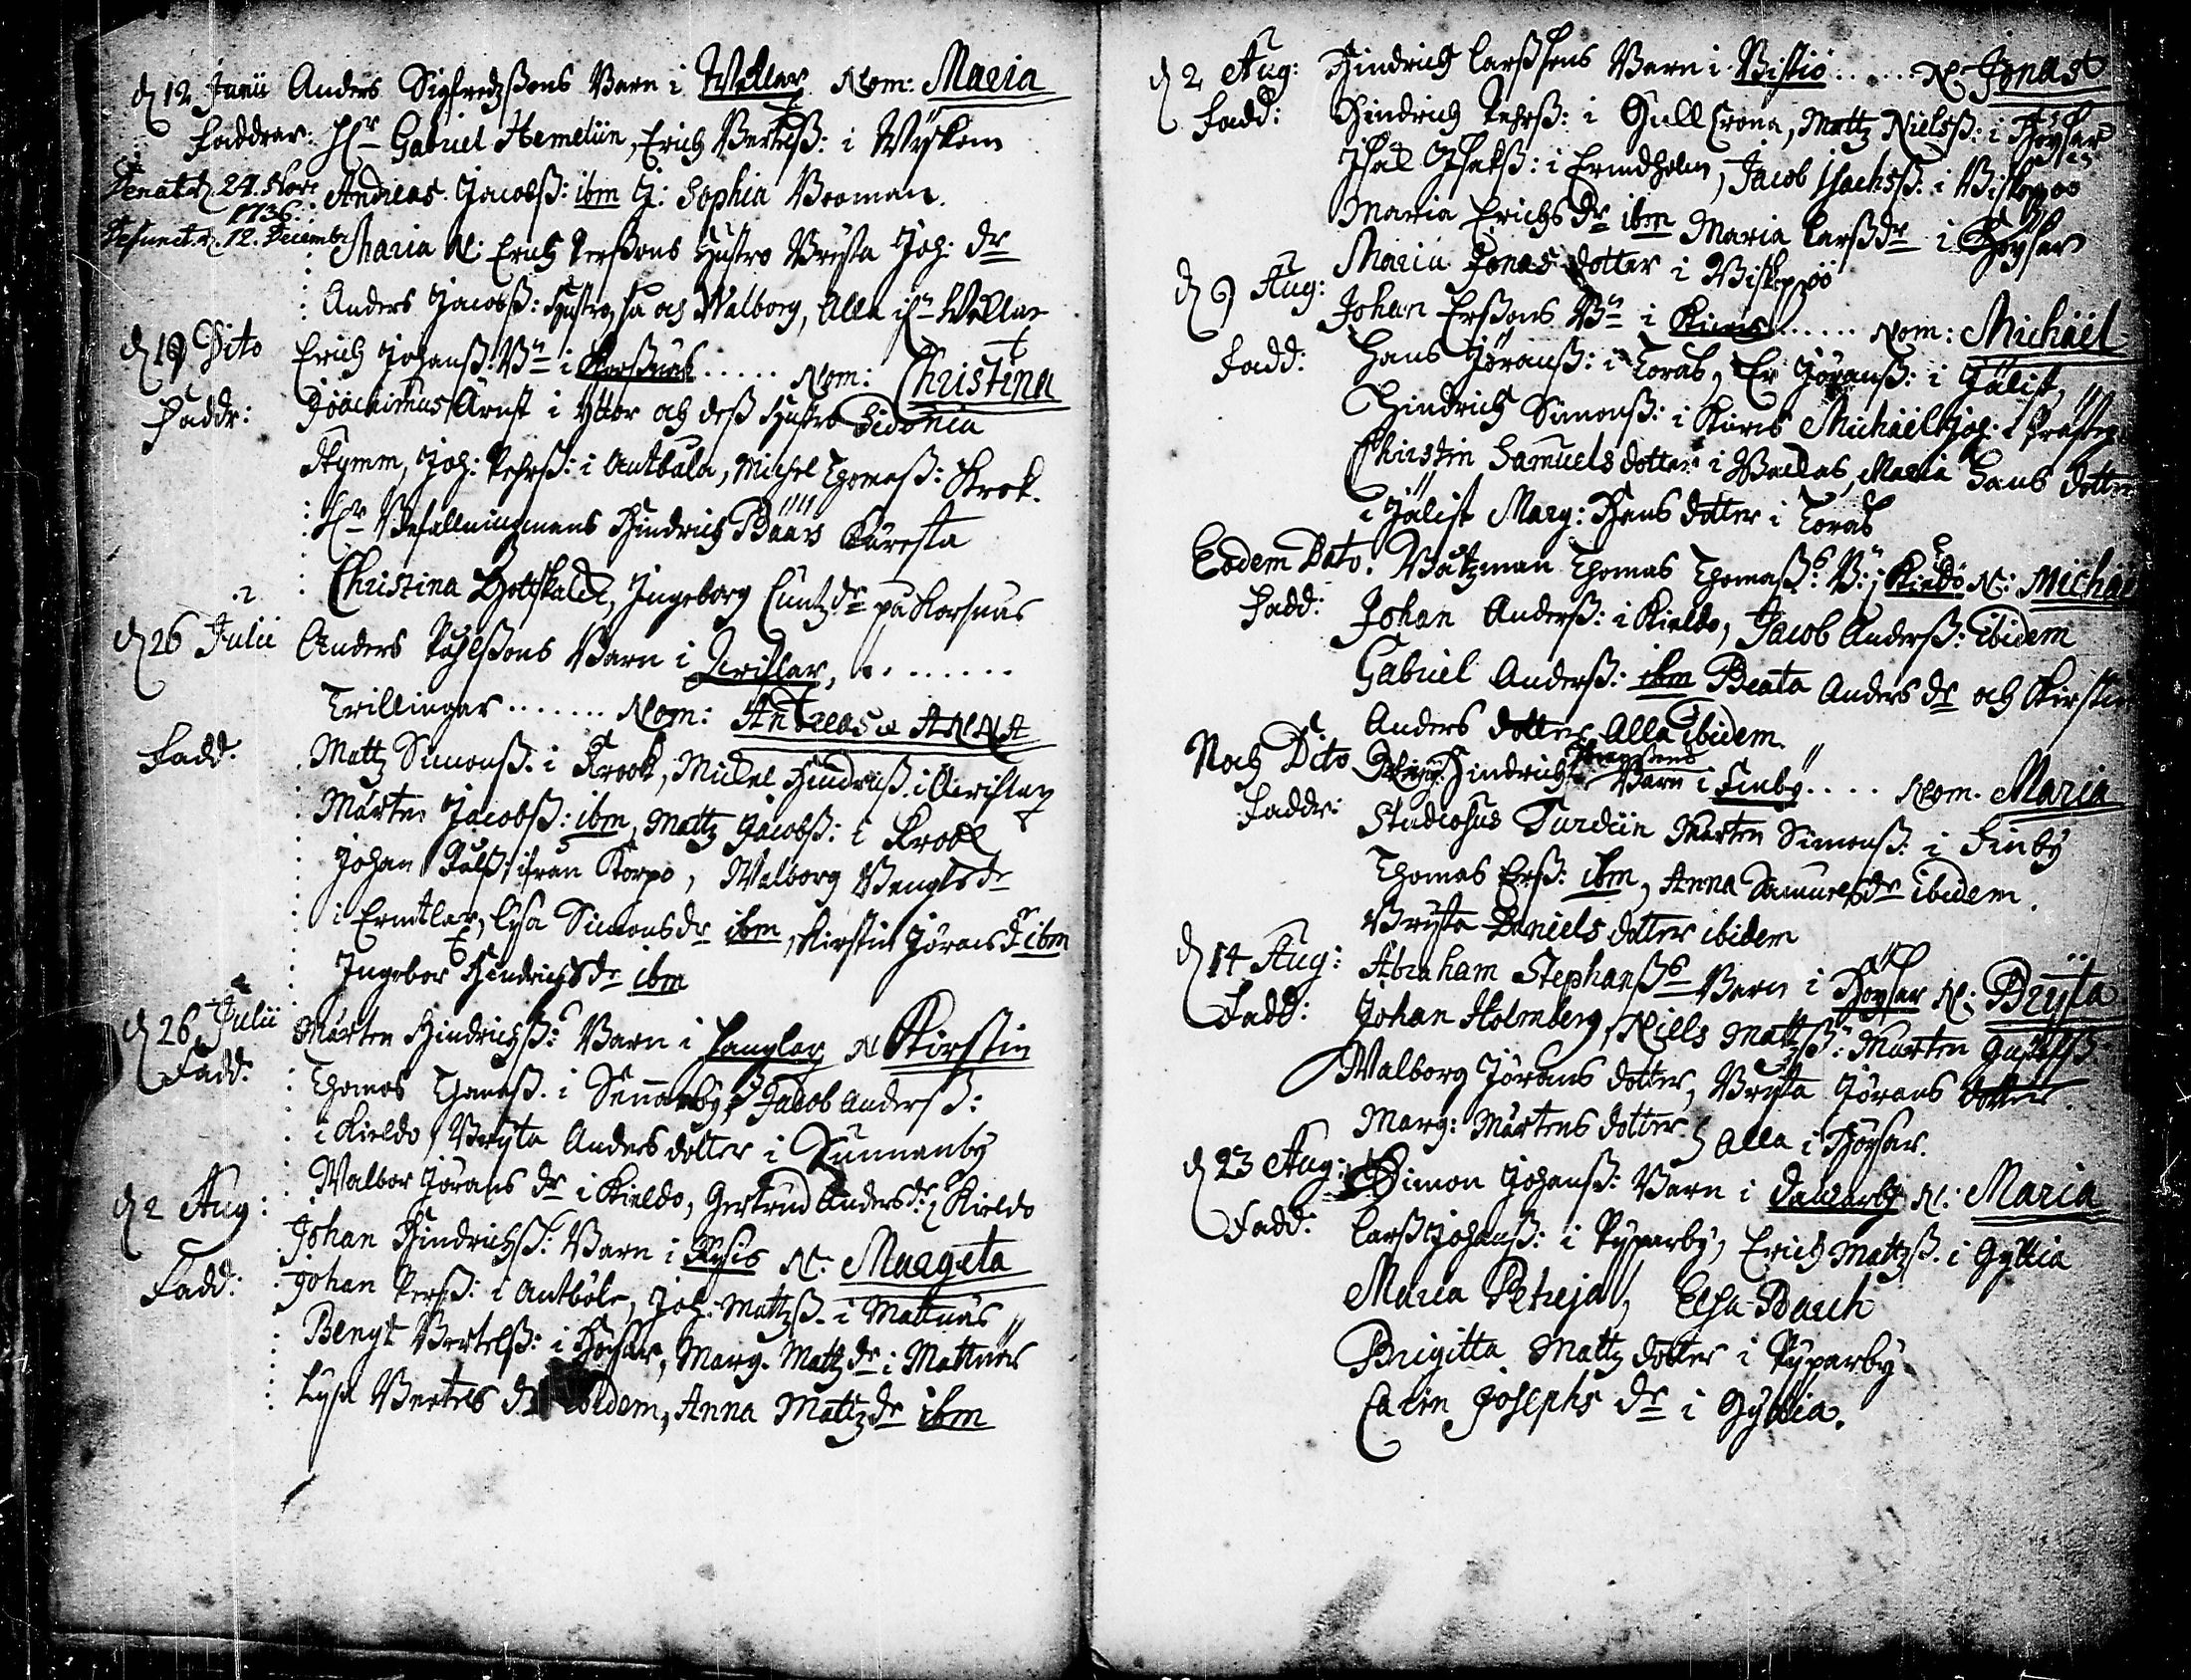 d 12 Junii Anders Sigfredzßons Barn i Wællar Nom: Maria
Faddrar: Hr Gabriel Hemeliin, Erich Bertelß: i Wyskom
Denat d. 24. Nov: Andreas Jacobß: ibm J: Sophia Booman.
1736.
Defunct. d. 12. Decembr Maria N: Erich Persßons Hustro Brijta Joh: dr
Anders Jacobß: Hustro, sa och Walborg, Alla ifrn Wællar
d 19 Dito Erich Johanß: Bn i Korßnäs ..... Nom: Christina
Faddr: Joachimus Arnst i och deß Hustro Sidonia
Stymm, Joh: Pehrß: i Antböla, Michel Thomaß: Krok.
Hr Befallningzmans Hindrich Bäärs Käresta
Christina Gottskalck, Ingeborg Cuntz dr på Korsnäs
d 26 Julii Anders Påhlßons Barn i Årvislax, ........
Trillingar ....... Nom: Andreas & ANNA
Fadd: Mattz Simonß: i Krook, Mickel Hindrichß: i Årvislax
Mårten Jacobß: ibm, Mattz Jacobß: i Krook
Johan ifrån Korpo, Walborg Bengts dr
i Ernitlax, Lisa Simons dr ibm, Kirstin Jörans dr ibm
Ingebor Hindrichs dr ibm
d 26 Julii Mårten Hindrichß: Barn i Parglax N Kirstin
Fadd: Thomas Thomaß. i Sunnanby, Jacob Anderß:
i Kieldo, Brijta Anders dotter i Sunnanby
Walbor Jörans dr i Kieldo, Gertrud Anders dr, Kieldo
d 2 Aug: Johan Hindrichß: Barn i Kysis N: Margeta
Fadd: Johan Perß: i Antböle, Joh: Mattzß. i Mattnäs
Bengt Bertelß: i Höysar, Marg. Mattz dr i Mattnäs
Lysa Bertels dr ibidem, Anna Mattz dr ibm
d 2 Aug: Hindrich Larßsons Barn i Biskiö ...... N Jonas
Fadd: Hindrich Pehrß: i Gull Crona, Mattz Nielsß: i Höysar
Isac Isakß: i Ernidholm, Jacob Isachsß: i Biskopöö
Maria Erichs dr ibm Maria Larß dr i Höysar
Maria Jonas dotter i Biskopöö
d 9 Aug: Johan Erßons Bn i Kirais ...... Nom: Michäel
Fadd: Hans Jöranß: i Toras, Er Jöranß: i Jälist,
Hindrich Simonß: i Kirais Michäel Joh: i Prästeg:
Christin Samuels dotter i Wallas, Maria Hans dotter
i Jälist Marg: Hans dotter i Toras
Eodem Dato. Båtzman Thomas Thomaß: B: i Kieldo N: Michäel
Fadd: Johan Anderß: i Kieldo, Jacob Anderß: ibidem
Gabriel Anderß: ibm Beata Anders dr och Kirstin
Anders dotter Alla ibidem.
Noch Dito Dreng: Hindrich Barn i Finby .... Nom. Maria
Faddr: Studiosus Turdiin Mårten Simonß: i Finby
Thomas Erß: ibm, Anna Samuels dr ibidem.
Brijta Daniels dotter ibidem
d 14 Aug: Abraham Stephanß Barn i Höysar N: Brijta
Fadd: Johan Holmberg, Niels Mattzß: Mårten Gustafß
Walborg Jörans dotter, Brijta Jörans dotter.
Marg: Mårtens dotter Alla i Höysar.
d 23 Aug: Simon Johanß: Barn i Dalkarby N: Maria
Fadd: Larß Johanß: i Pijparby, Erich Mattzß. i Gyttia
Maria Petreja, Elsa Barck
Brigitta Mattz dotter i Pijparby
Carin Josephs dr i Gyttia.